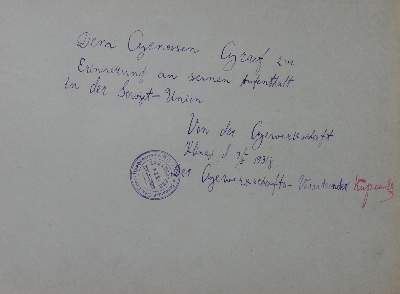 Dem Genossen Graf zur
Erinnerung an seinen Aufenthalt
in der Sowjet-Union
Von der Gewerkschaft
Der Gewerkschafts-Vorsitzende